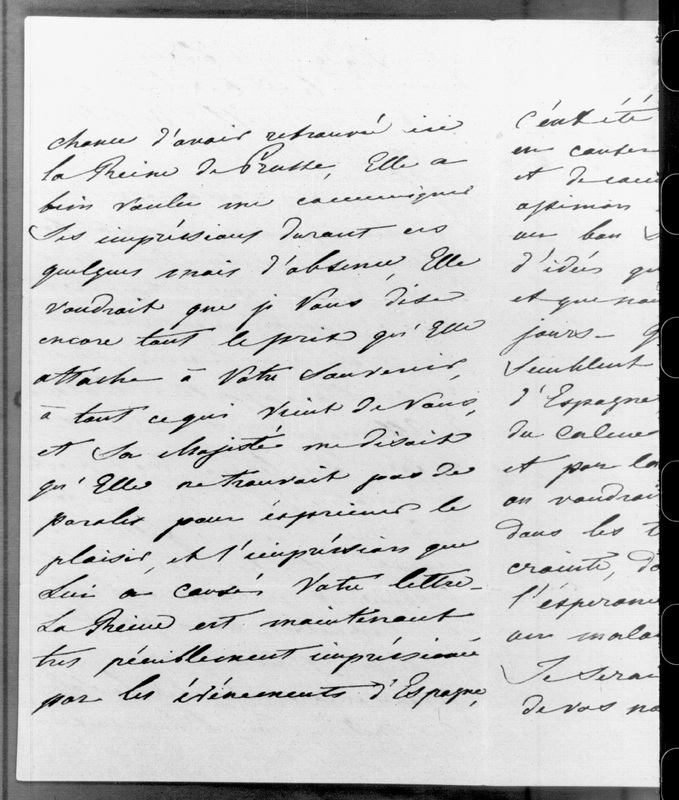 chance d'avoir retrouvé ici
la Reine de Prusse, Elle a
bien voulu me communiquer
Ses impréssions durant ces
quelques mois d'absence, Elle
voudrait que je Vous dise
encore tout le prix qu'Elle
attache à Votre Souvenir,
à tout ce qui vient de Vous,
et Sa Majesté me disait
qu'Elle ne trouvait pas de
paroles pour éxprimer le
plaisir, et l'impréssion que
Lui a causés Votre lettre_
La Reine est maintenant
très péniblement impréssionée
par les événements d'Espagne,
en causer
et de
un bon
d'idées
et que
jours_
Semblent
d'Espagne
du
et par
on voudrai
dans les
crainte,
l'ésperan
un
Je serai
de vos